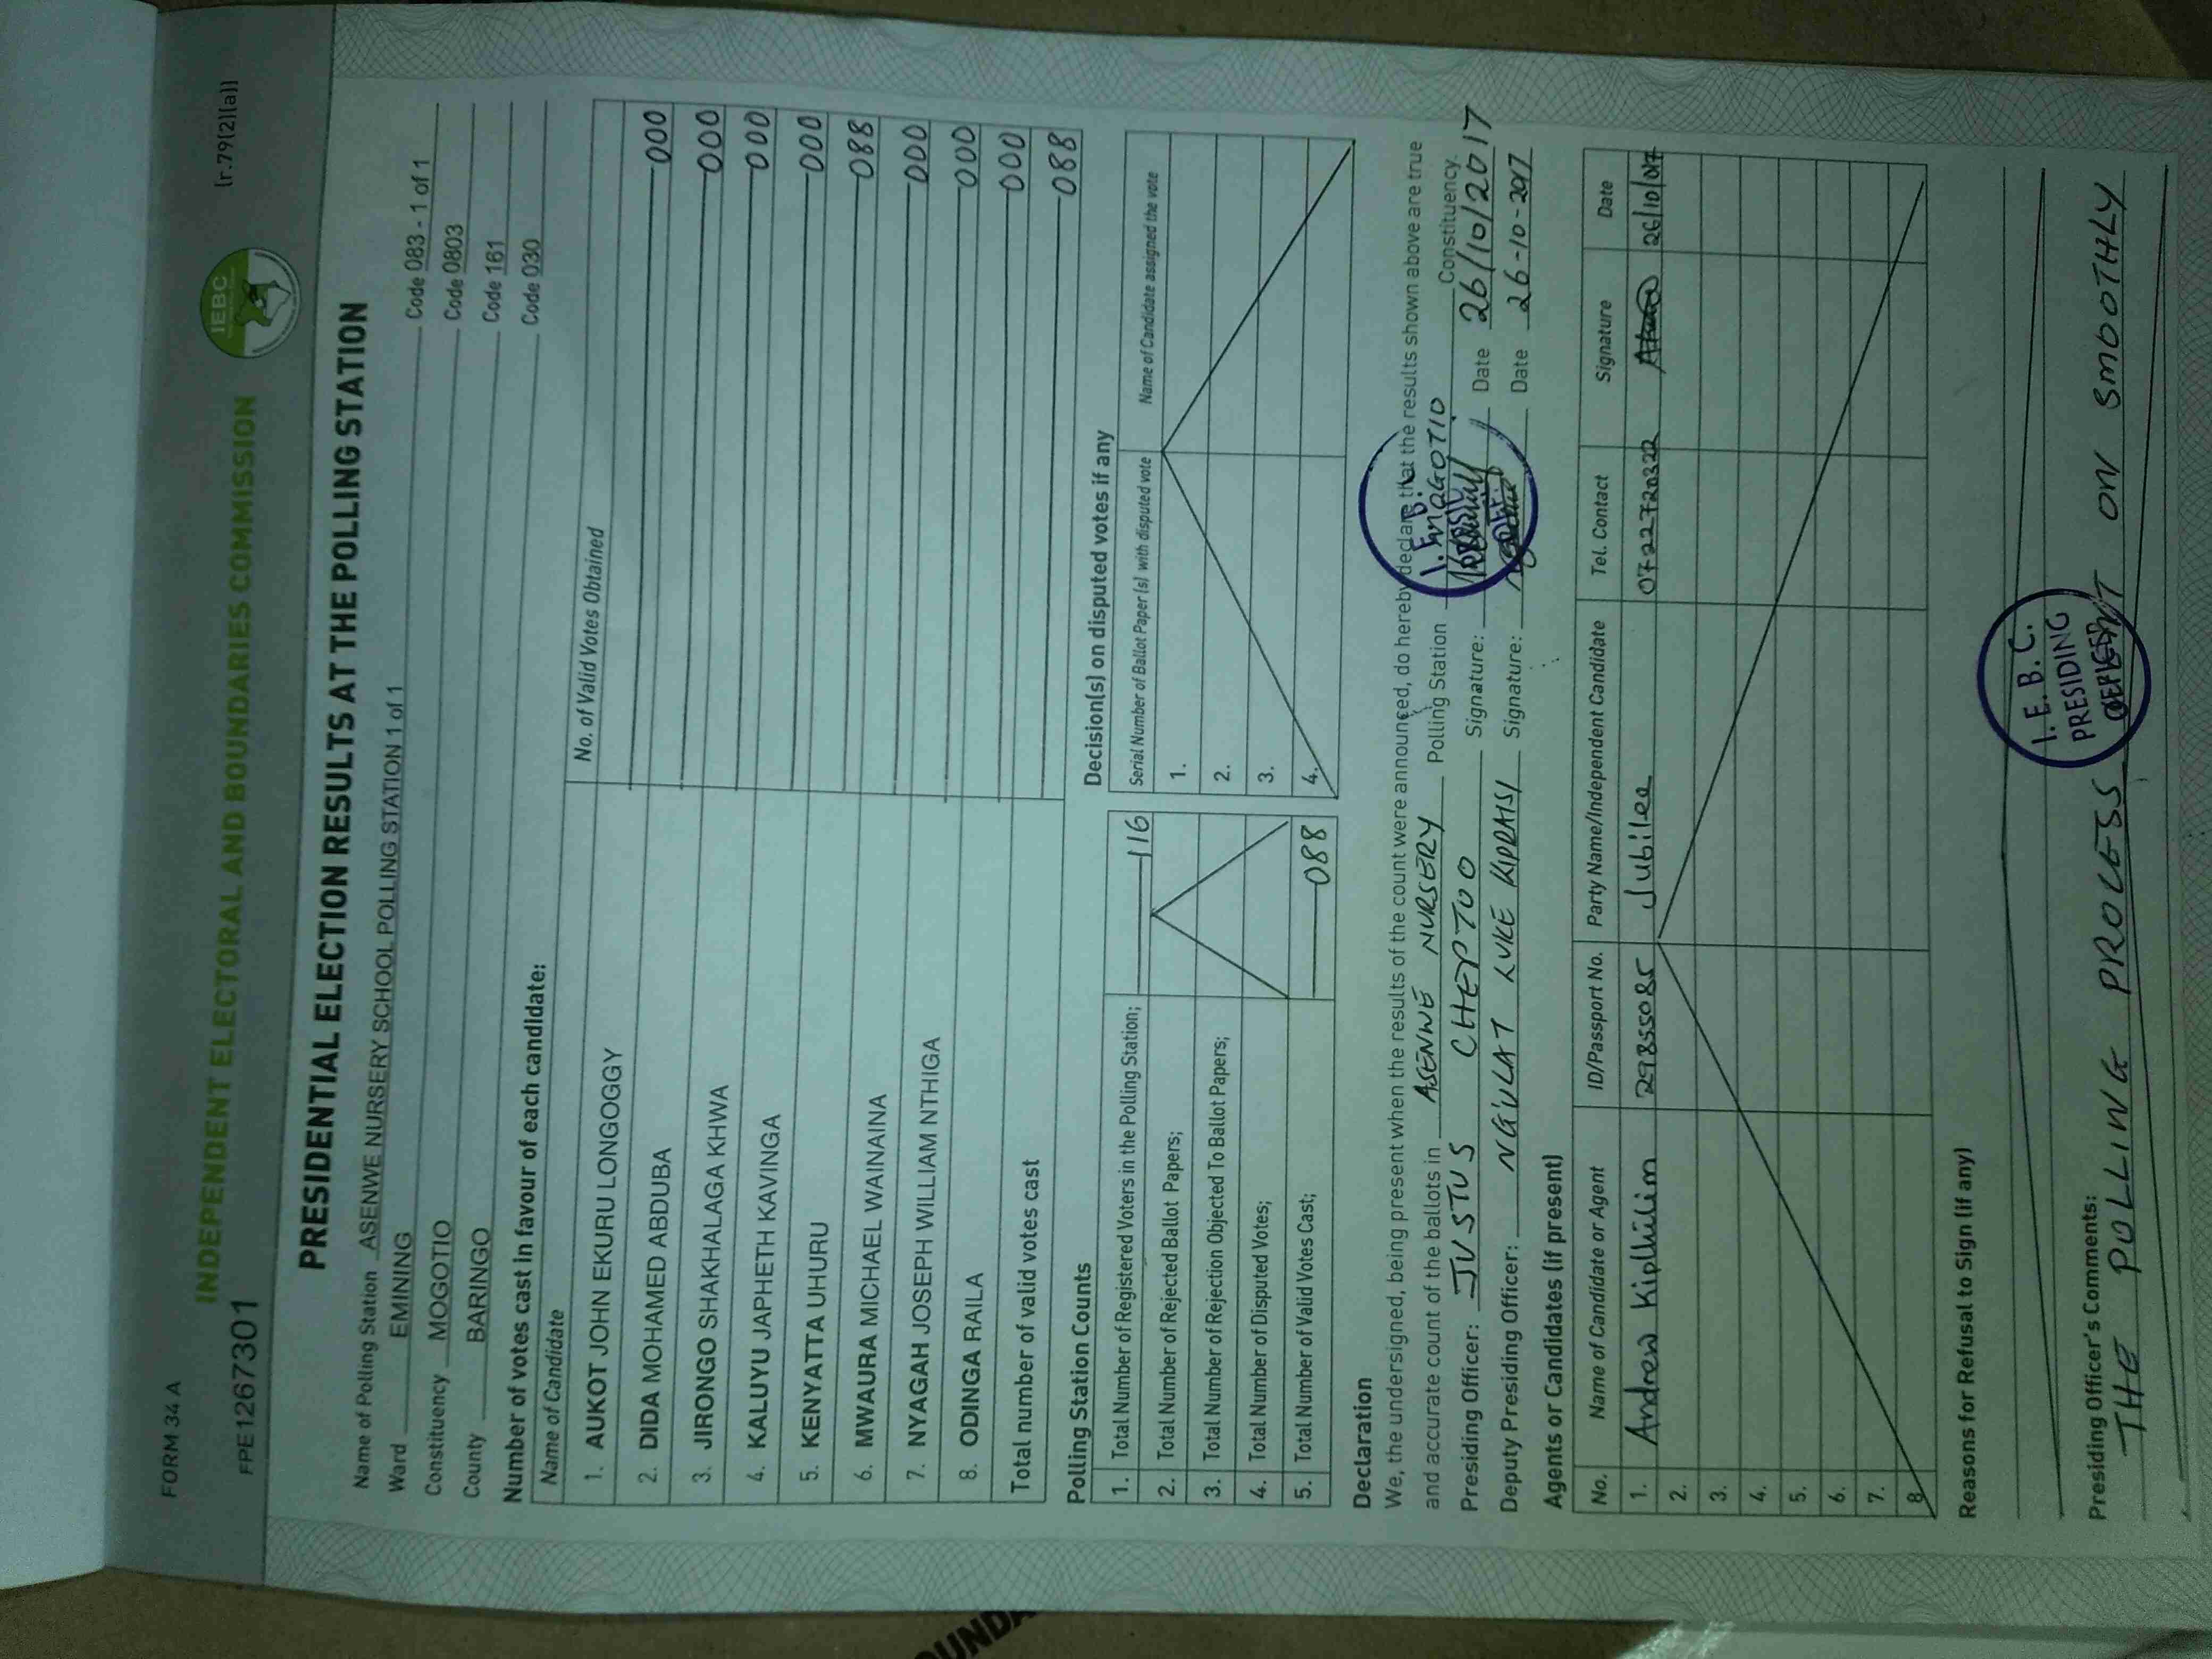 FORM 34 A
FPE 1267301
INDEPENDENT ELECTORAL AND BOUNDARIES COMMISSION
IEBC
(r.79(2)(a))
PRESIDENTIAL ELECTION RESULTS AT THE POLLING STATION
Name of Polling Station ASENWE NURSERY SCHOOL POLLING STATION 1 of 1 Code 083 - 1 of 1
Ward EMINING Code 0803
Constituency MOGOTIO Code 161
County BARINGO Code 030
Number of votes cast in favour of each candidate:
Name of Candidate No. of Valid Votes Obtained
1. AUKOT JOHN EKURU LONGOGGY 000
2. DIDA MOHAMED ABDUBA 000
3. JIRONGO SHAKHALAGA KHWA 000
4. KALUYU JAPHETH KAVINGA 000
5. KENYATTA UHURU 088
6. MWAURA MICHAEL WAINAINA 000
7. NYAGAH JOSEPH WILLIAM NTHIGA 000
8. ODINGA RAILA 000
Total number of valid votes cast 088
Polling Station Counts
1. Total Number of Registered Voters in the Polling Station; 116
2. Total Number of Rejected Ballot Papers;
3. Total Number of Rejection Objected To Ballot Papers;
4. Total Number of Disputed Votes;
5. Total Number of Valid Votes Cast; 088
Decision(s) on disputed votes if any
Serial Number of Ballot Paper (s) with disputed vote Name of Candidate assigned the vote
1.
2.
3.
4.
Declaration
We, the undersigned, being present when the results of the count were announced, do hereby declare that the results shown above are true
and accurate count of the ballots in ASENWE NURSERY Polling Station MOGOTIO Constituency.
Presiding Officer: JUSTUS CHEPTOO Signature: Date 26/10/2017
Deputy Presiding Officer: NGULAT LUKE KIPRAISI Signature: Date 26-10-2017
Agents or Candidates (if present)
No. Name of Candidate or Agent ID/Passport No. Party Name/Independent Candidate Tel. Contact Signature Date
1. Andrew Kiplilim 29855085 Jubilee 0722720322 26/10/017
2.
3.
4.
5.
6.
7.
8.
Reasons for Refusal to Sign (if any)
I. E. B. C.
PRESIDING
Presiding Officer's Comments:
THE POLLING PROCESS ON SMOOTHLY